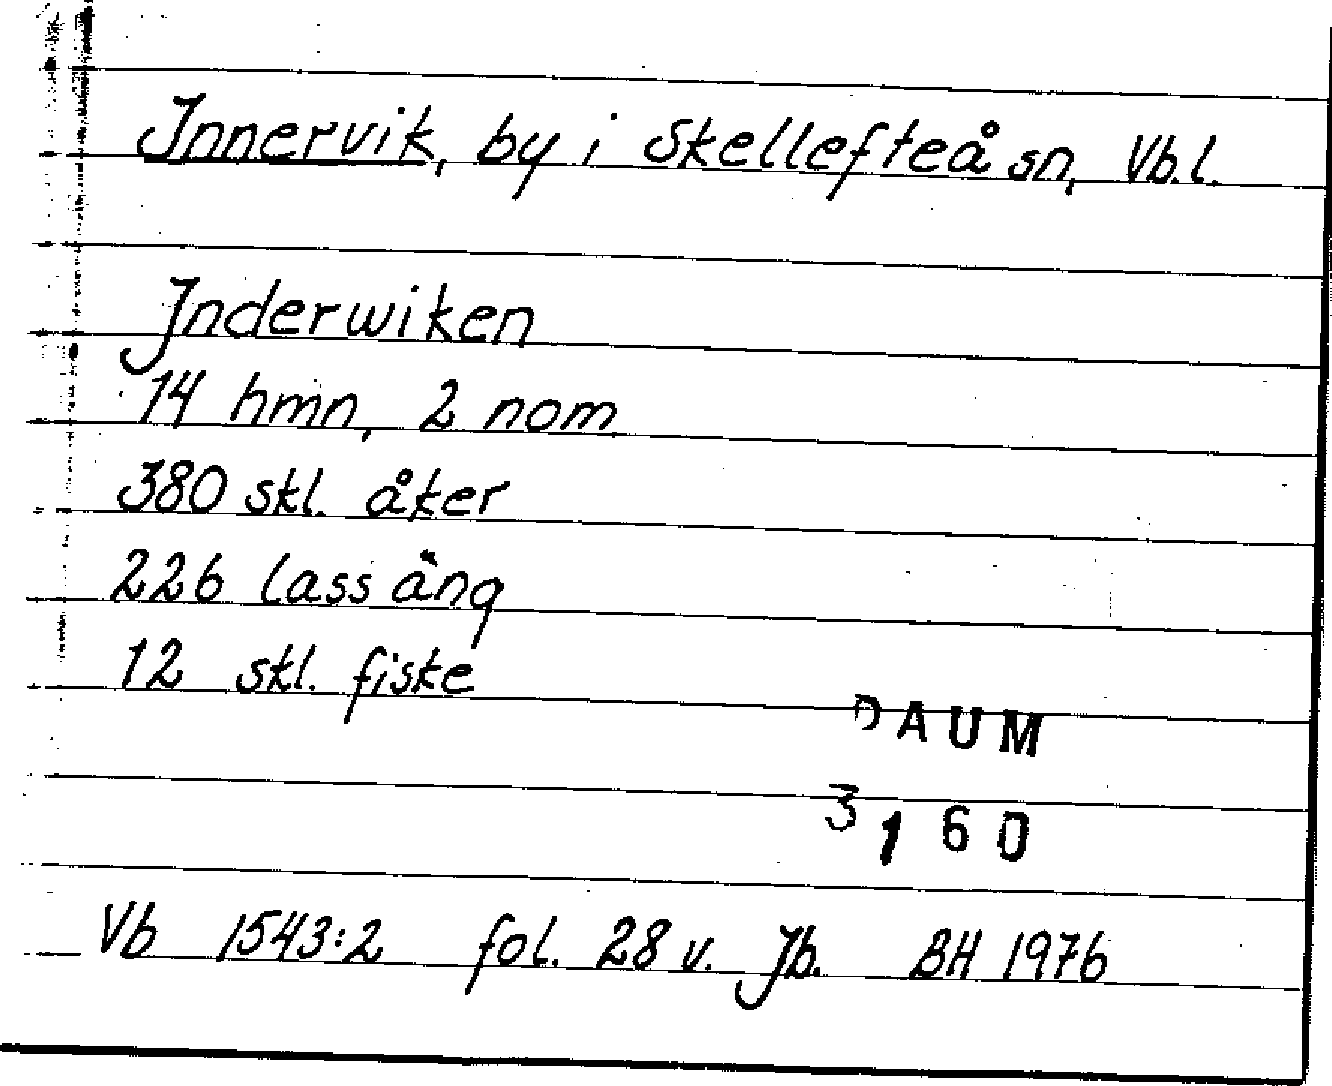 Innervik, by i Skellefteå sn, Vb.l.
Jnderwiken
14 hmn, 2 nom
380 skl. åker
226 lass äng
12 skl. fiske
DAUM
3160
Vb 1543:2 fol. 28 v. Jb. BH 1976